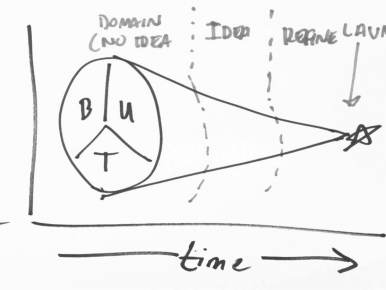 DOMAIN
(NO IDEA
IDEA
REFINE
LAUN
B
U
T
time